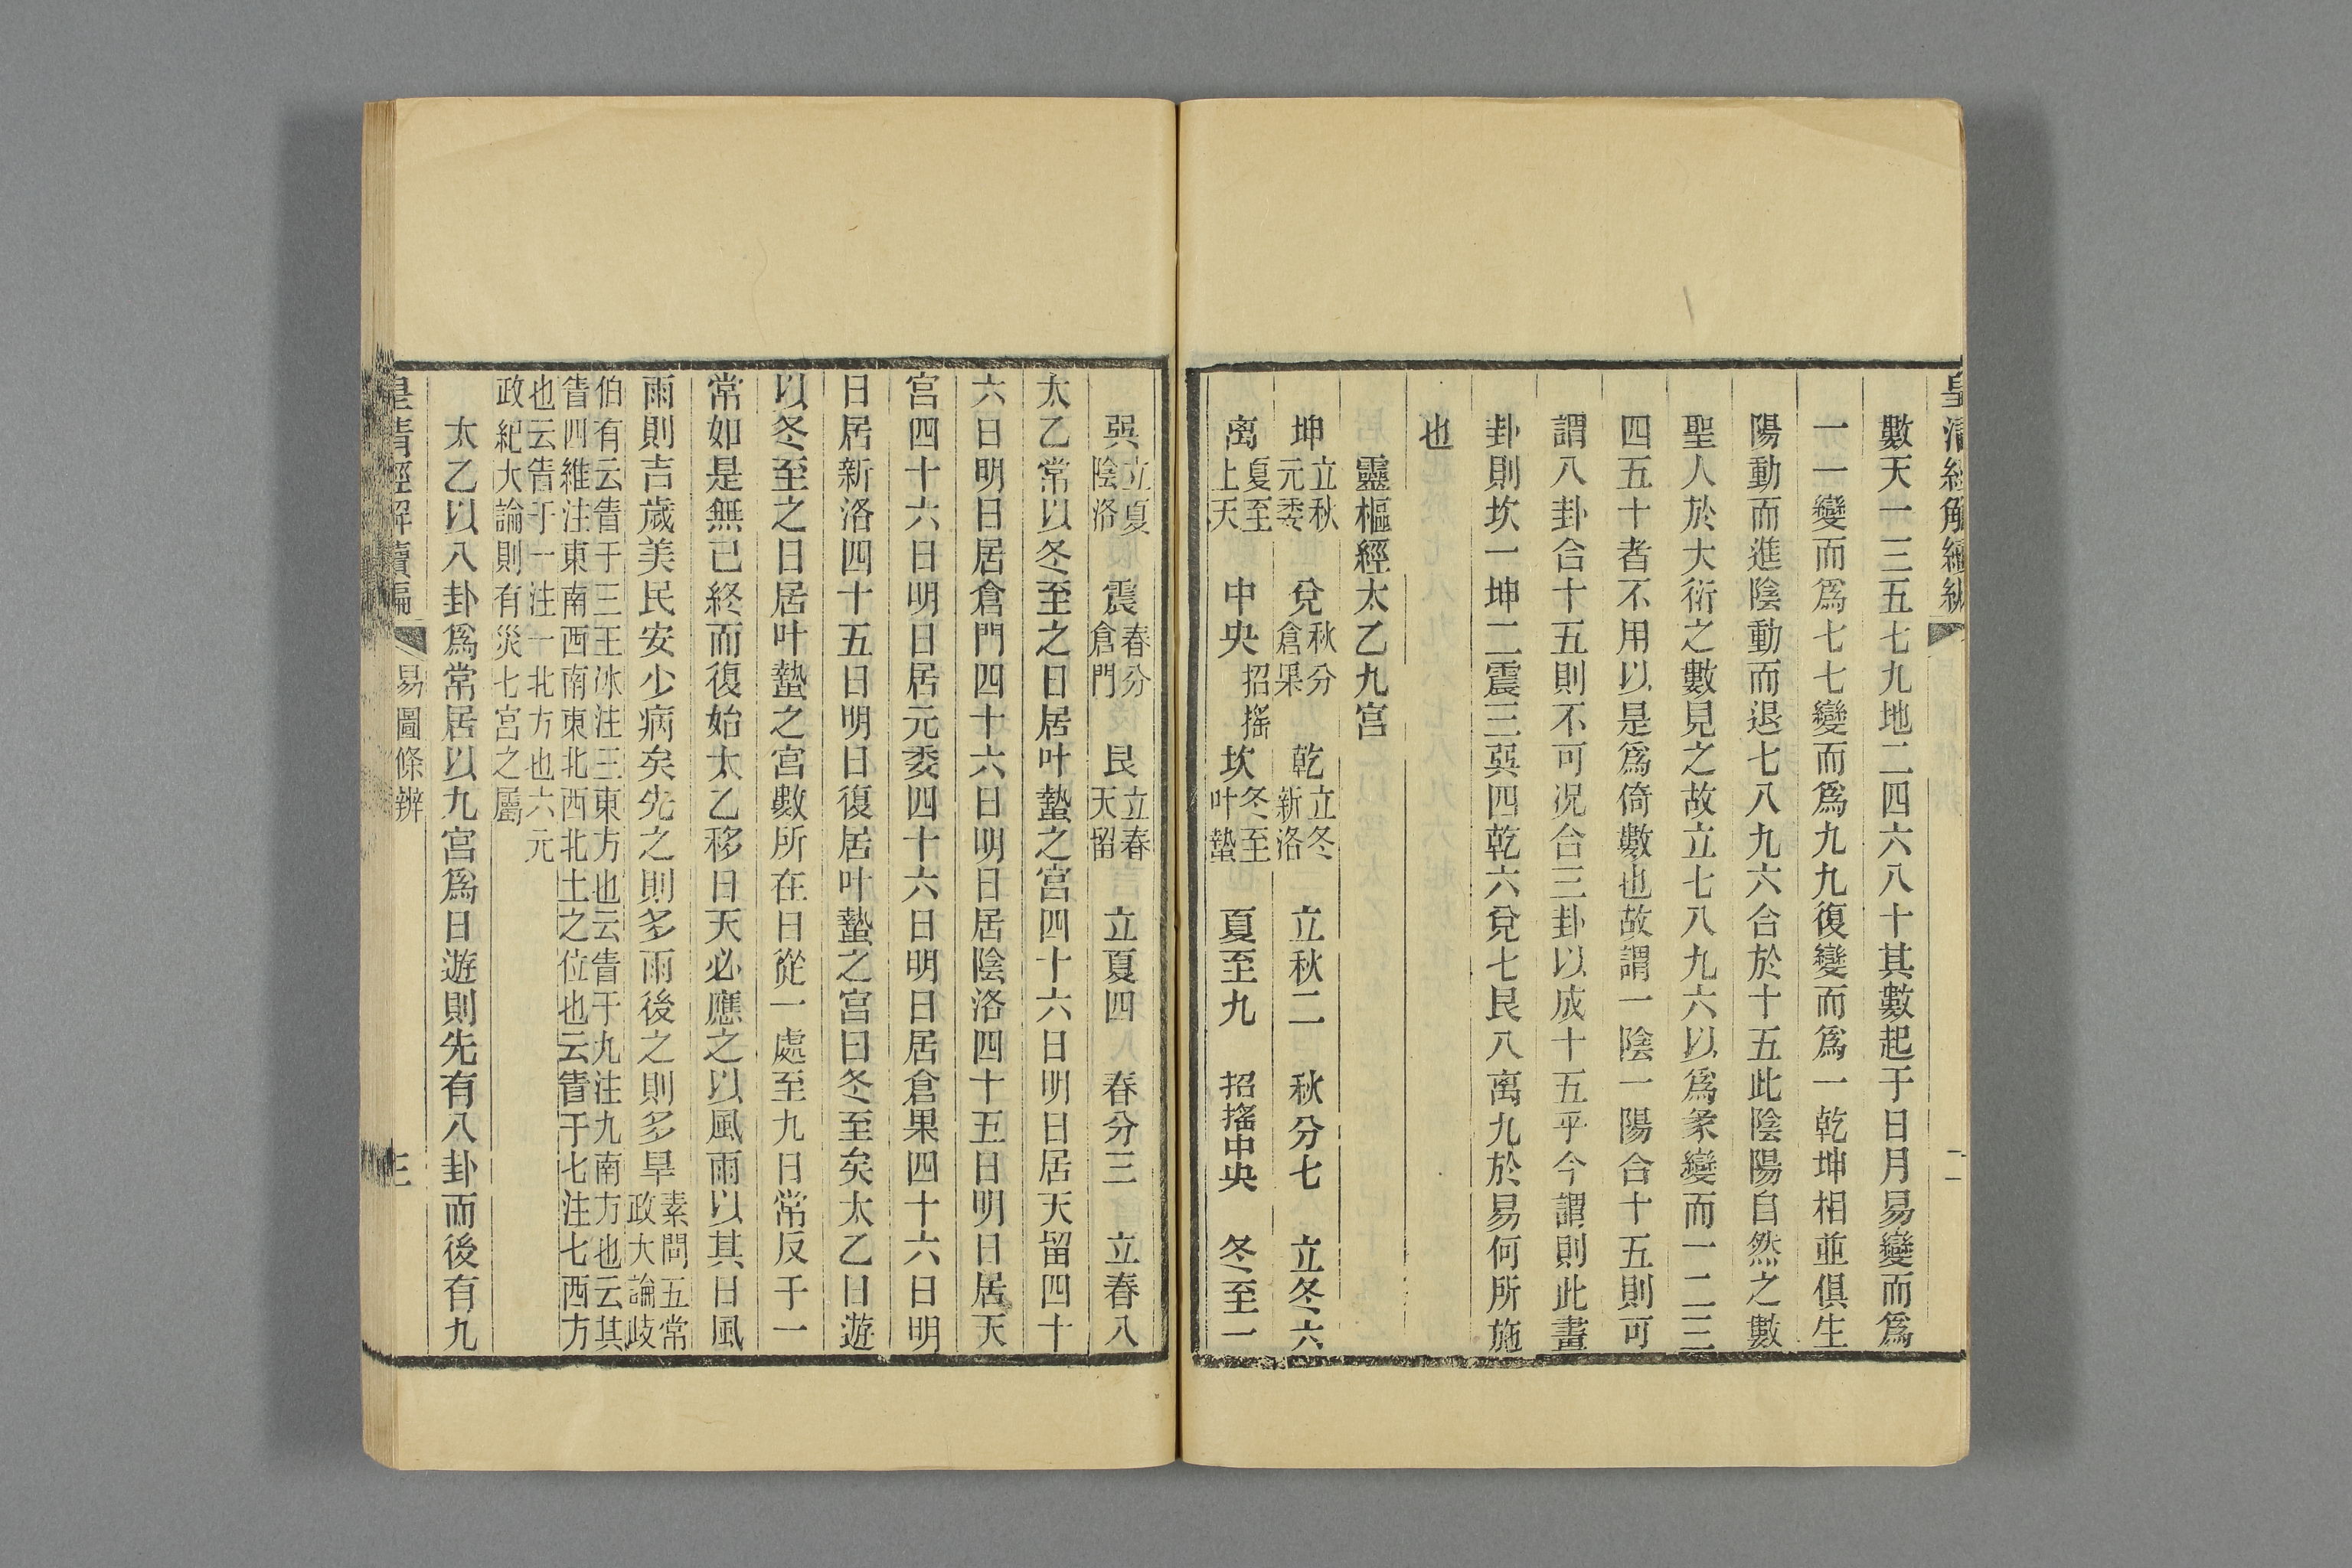 皇清經解續編
二
數天一三五七九地二四六八十其數起于日月易變而爲
一一變而爲七七變而爲九九復變而爲一乾坤相並俱生
陽動而進陰動而退七八九六合於十五此陰陽自然之數
聖人於大衍之數見之故立七八九六以爲彖變而一二三
四五十者不用以是爲倚數也故謂一陰一陽合十五則可
謂八卦合十五則不可況合三卦以成十五乎今謂則此畫
卦則坎一坤二震三巽四乾六兌七艮八离九於易何所施
也
靈樞經太乙九宮
坤 立秋 元委 兌 秋分 倉果 乾 立冬 新洛 立秋二 秋分七 立冬六
离 夏至 上天 中央 招搖 坎 冬至 叶蟄 夏至九 招搖中央 冬至一
巽 立夏 陰洛 震 春分 倉門 艮 立春 天留 立夏四 春分三 立春八
太乙常以冬至之日居叶蟄之宮四十六日明日居天留四十
六日明日居倉門四十六日明日居陰洛四十五日明日居天
宮四十六日明日居元委四十六日明日居倉果四十六日明
日居新洛四十五日明日復居叶蟄之宮曰冬至矣太乙日遊
以冬至之日居叶蟄之宮數所在日從一處至九日常反于一
常如是無已終而復始太乙移日天必應之以風雨以其日風
雨則吉歲美民安少病矣先之則多雨後之則多旱 素問五常
政大論歧
伯有云眚于三王冰注三東方也云眚于九注九南方也云其
眚四維注東南西南東北西北土之位也云眚于七注七西方
也云眚于一注一北方也六元
政紀大論則有災七宮之屬
太乙以八卦爲常居以九宮爲日遊則先有八卦而後有九
皇清經解續編
易圖條辨
三